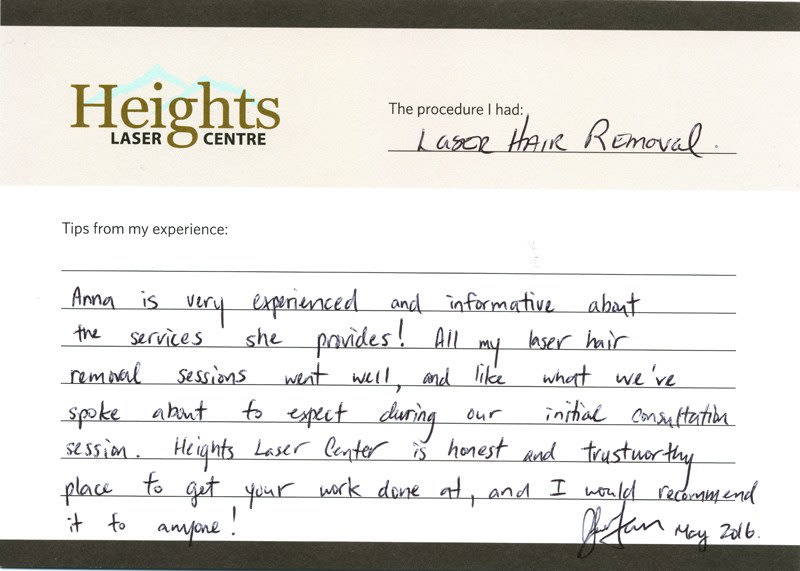 Heights
LASER CENTRE
The procedure I had:
LASER HAIR REMOVAL.
Tips from my experience:
Anna is very experienced and informative about
the services she provides! All my laser hair
removal sessions went well, and like what we've
spoke about to expect during our initial consultation
session. Heights Laser Center is honest and trustworthy
place to get your work done at, and I would recommend
it to anyone!
May 2016.